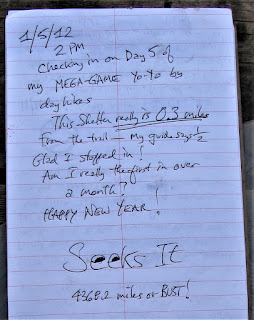 1/5/12
2 PM
Checking in on Day 5 of
my MEGA-GAME Yo-Yo by
day hikes
This Shelter really is 0.3 miles
From the trail — My guide says 1/2
Glad I stopped in!
Am I really the first in over
a month?
HAPPY NEW YEAR!
Seeks It
4368.2 miles or BUST!